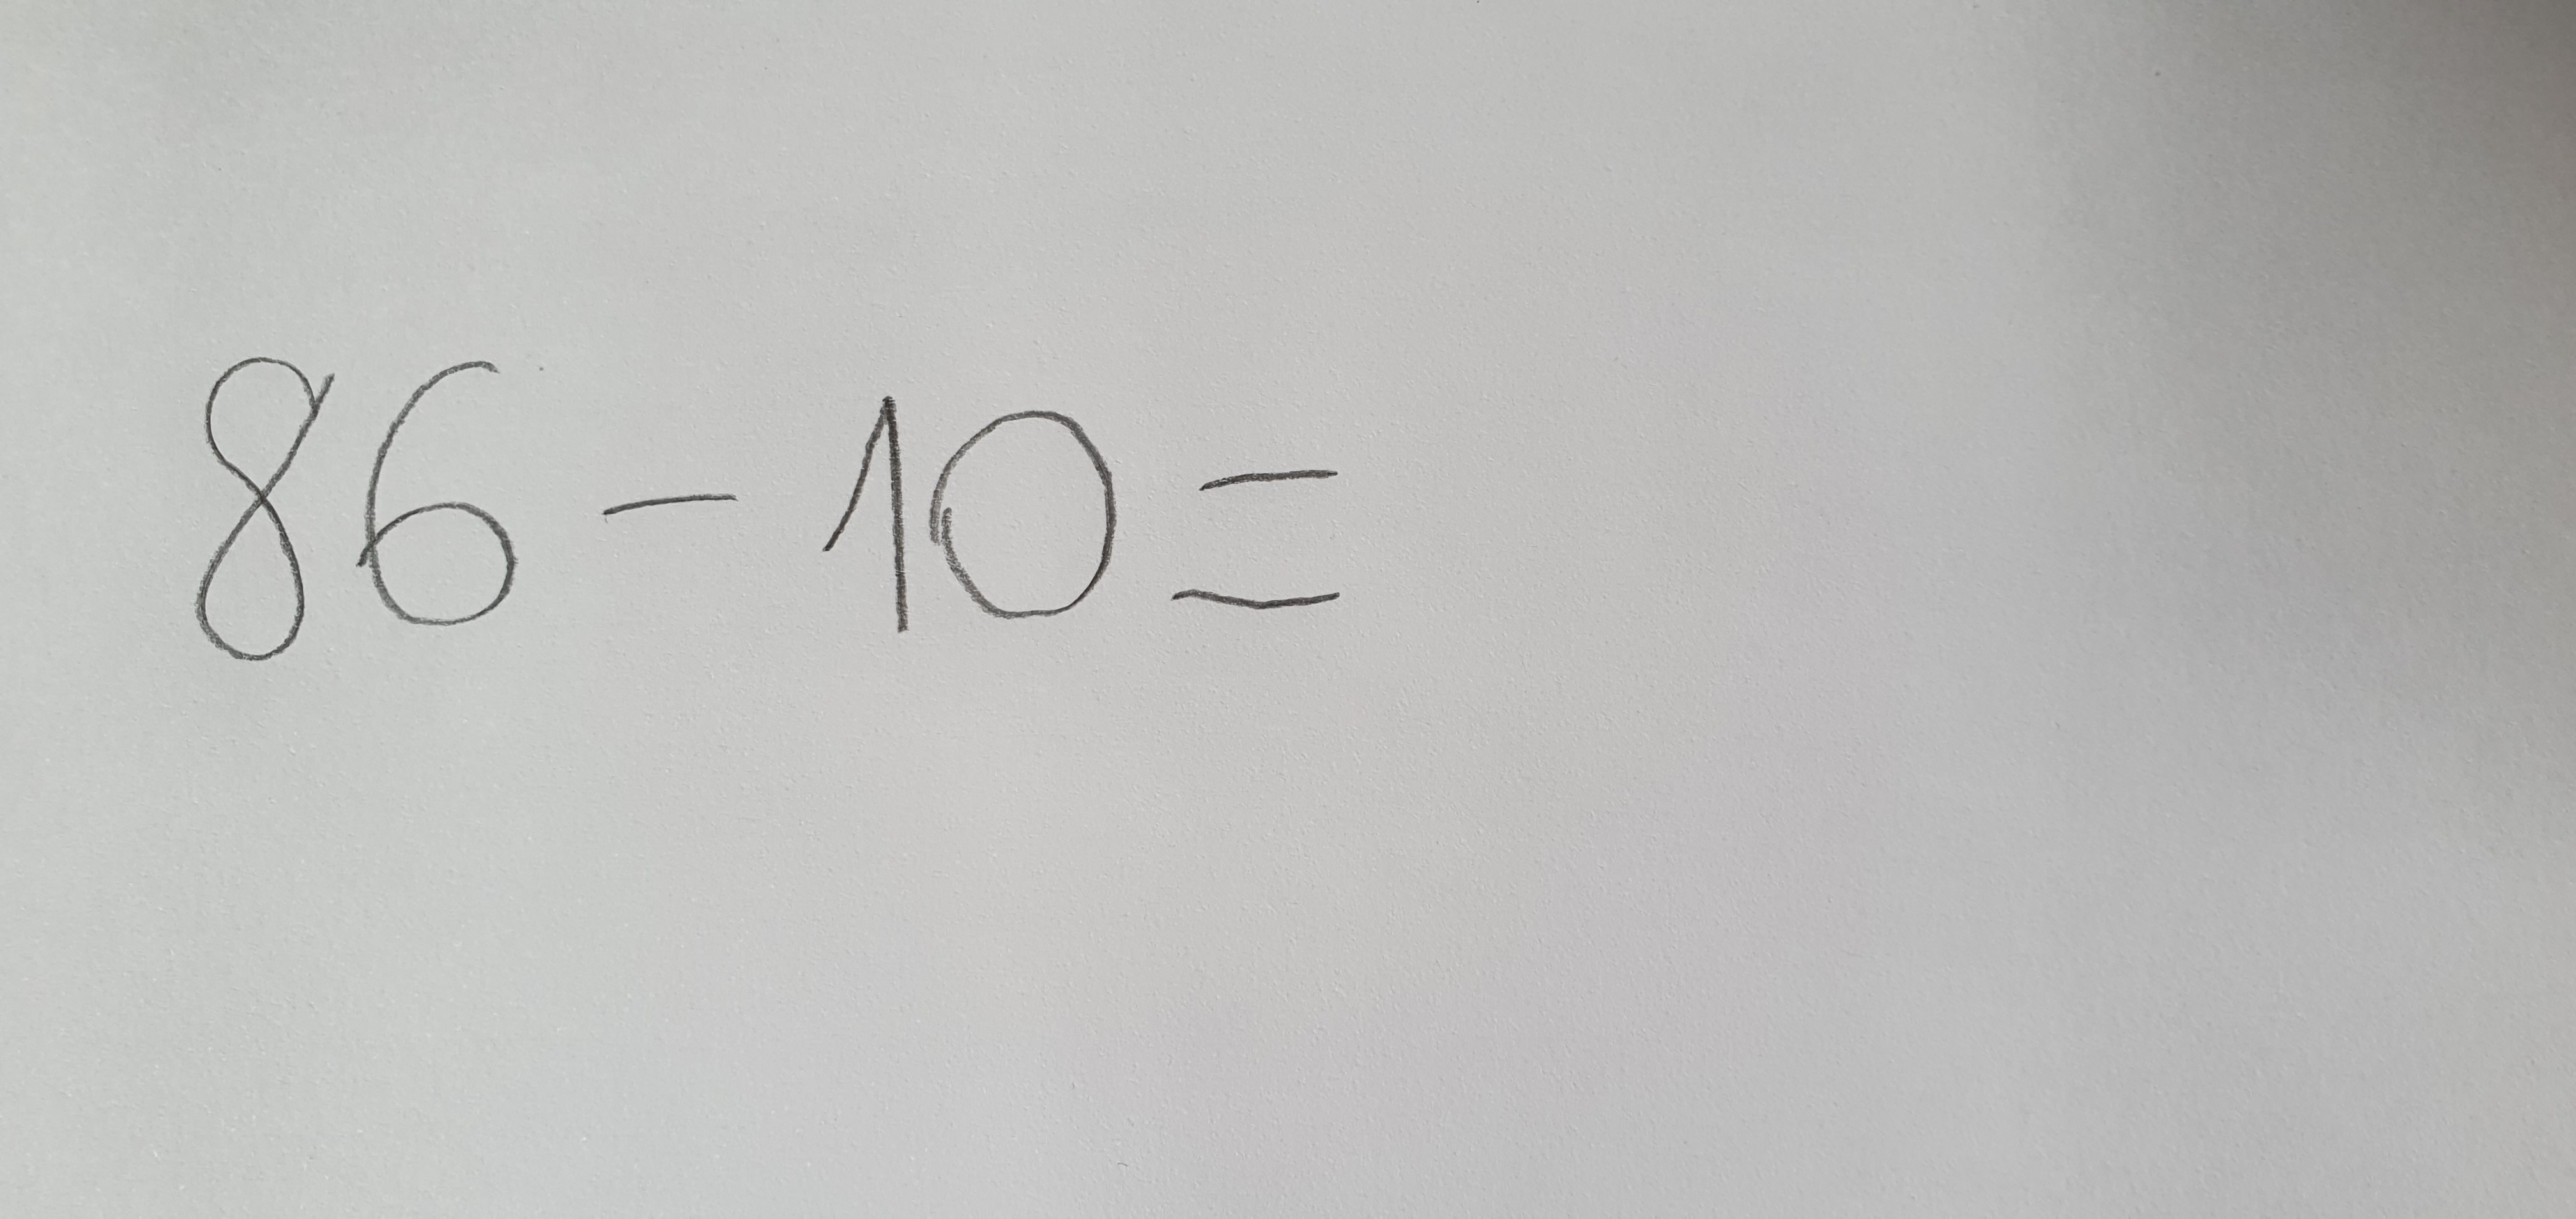 86 - 10 =